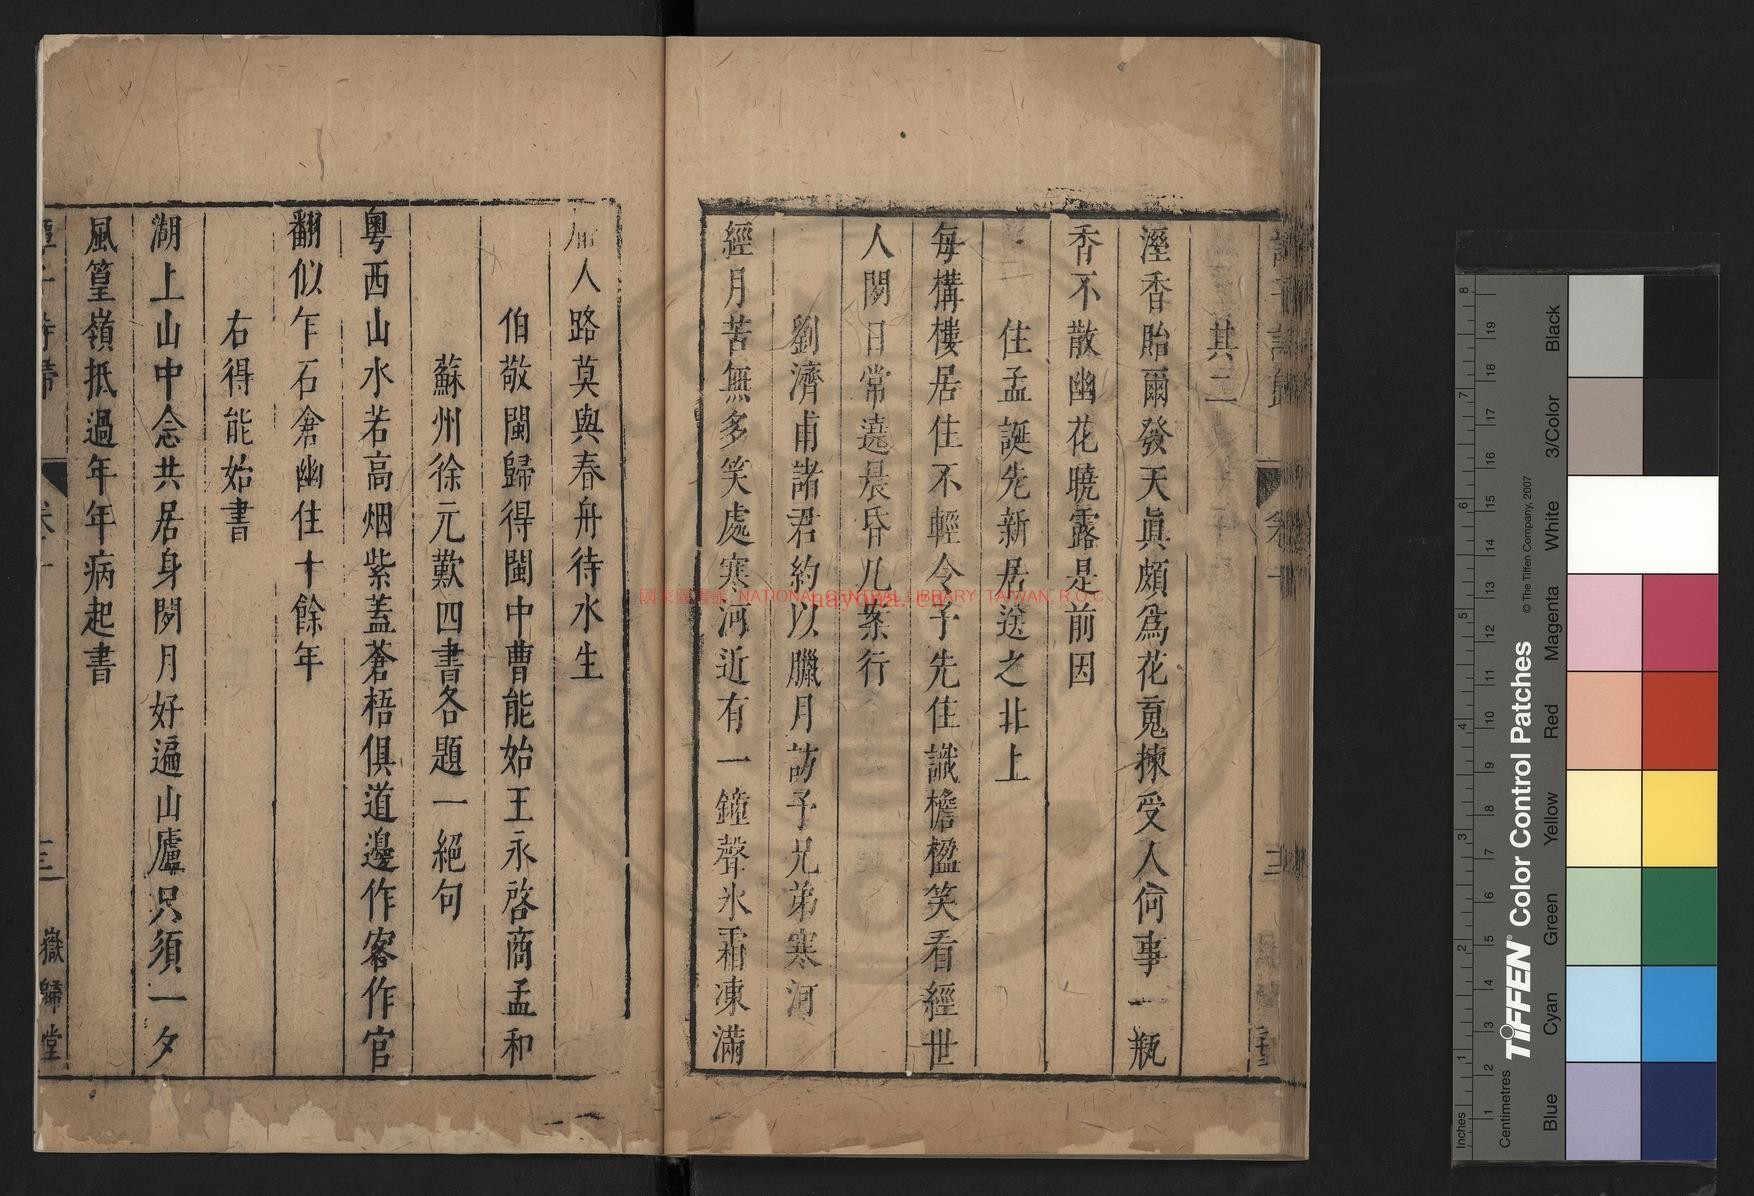 其二
溼香貽爾發天眞頗爲花寃揀受人何事一瓶
香不散幽花曉露是前因
住孟誕先新居送之北上
每構樓居住不輕令子先住識檐楹笑看經世
人閒日常遶晨昏几案行
劉濟甫諸君約以臘月訪予兄弟寒河
經月苦無多笑處寒河近有一鐘聲氷霜凍滿
人路莫與春舟待水生
伯敬閩歸得閩中曹能始王永啓商孟和
蘇州徐元歎四書各題一絕句
粵西山水若高烟紫蓋蒼梧俱道邊作客作官
翻似乍石倉幽住十餘年
右得能始書
湖上山中念共居身閒月好遍山廬只須一夕
風篁嶺抵過年年病起書
嶽歸堂
國家圖書館 NATIONAL CENTRAL LIBRARY, TAIWAN, R.O.C.
TIFFEN® Color Control Patches
© The Tiffen Company, 2007
Inches 1 2 3 4 5 6 7 8
Centimetres 1 2 3 4 5 6 7 8 9 10 11 12 13 14 15 16 17 18 19
Blue Cyan Green Yellow Red Magenta White 3/Color Black